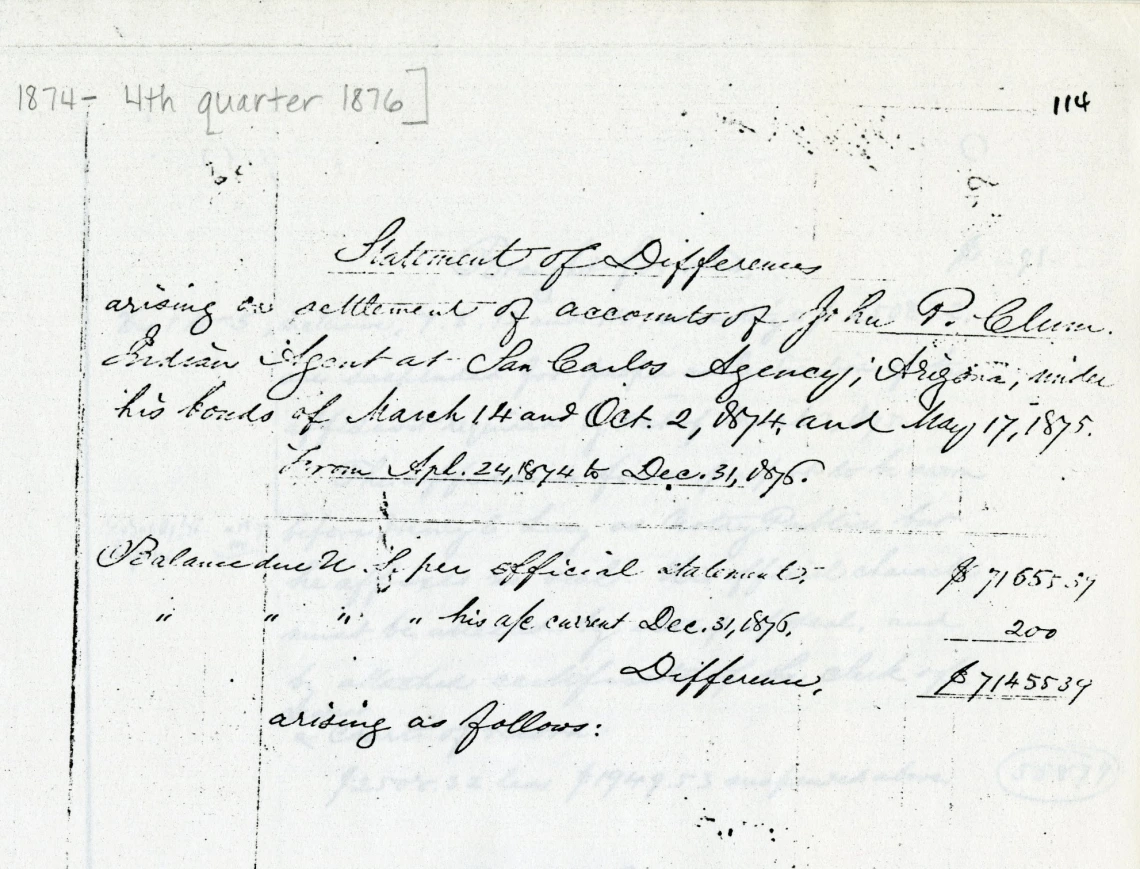 1874 - 4th quarter 1876]
114
Statement of Differences
arising on settlement of accounts of John P. Clum.
Indian Agent at San Carlos Agency, Arizona, under
his bonds of March 14 and Oct. 2, 1874, and May 17, 1875.
From Apl. 24, 1874 to Dec. 31, 1876.
Balance due U. S. per official statement: $ 71655 39
" " " " his a/c current Dec. 31, 1876. 200
Difference, $ 71455 39
arising as follows: